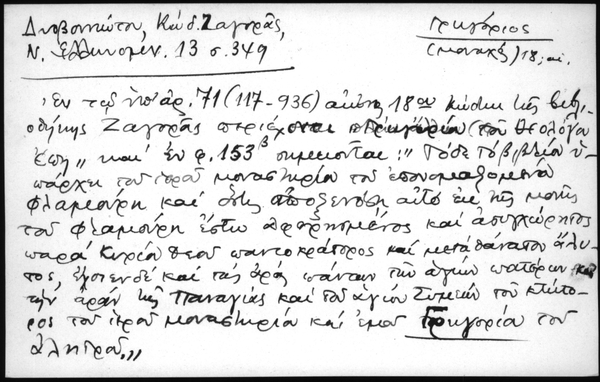 Δυοβουνιώτου, Κώδ. Ζαγορᾶς,
Ν. Ἑλληνομν. 13 σ. 349
Γρηγόριος
(μοναχός) 18; αἰ.
Ἐν τῷ ὑπ' ἀρ. 71 (117-936) αἰῶνος 18ου κώδικι τῆς βιβλι
οθήκης Ζαγορᾶς περιέχονται Γρηγορίου τοῦ Θεολόγου
ἔπη „ καὶ ἐν φ. 153β σημειοῦται: " Τόδε τὸ βιβλίον ὑ-
πάρχει τοῦ ἱεροῦ μοναστηρίου τοῦ ἐπονομαζομένου
Φλαμούρη καὶ ὅστις ἀποξενώσῃ αὐτὸ ἐκ τῆς μονῆς
τοῦ Φλαμούρη ἔστω ἀφωρισμένος καὶ ἀσυγχώρητος
παρὰ Κυρίου Θεοῦ παντοκράτορος καὶ μετὰ θάνατον ἄλυ-
τος, καὶ τὰς ἀρὰς πάντων τῶν ἁγίων πατέρων καὶ
τὴν ἀρὰν τῆς Παναγίας καὶ τοῦ ἁγίου Συμεὼν τοῦ κτίτο-
ρος τοῦ ἱεροῦ μοναστηρίου καὶ ἐμοῦ Γρηγορίου τοῦ
ἀλιτροῦ „